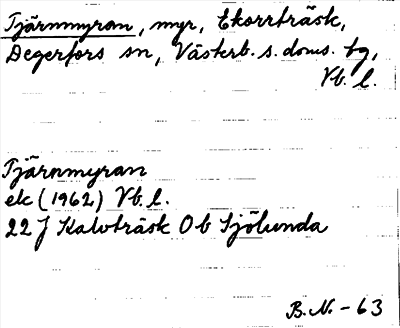 Tjärnmyran, myr, Ekorrträsk,
Degerfors sn, Västerb. s. doms. tg,
Vb. l.
Tjärnmyran
ek (1962) Vb. l.
22 J Kalvträsk 0 b Sjölunda
B. N. - 63